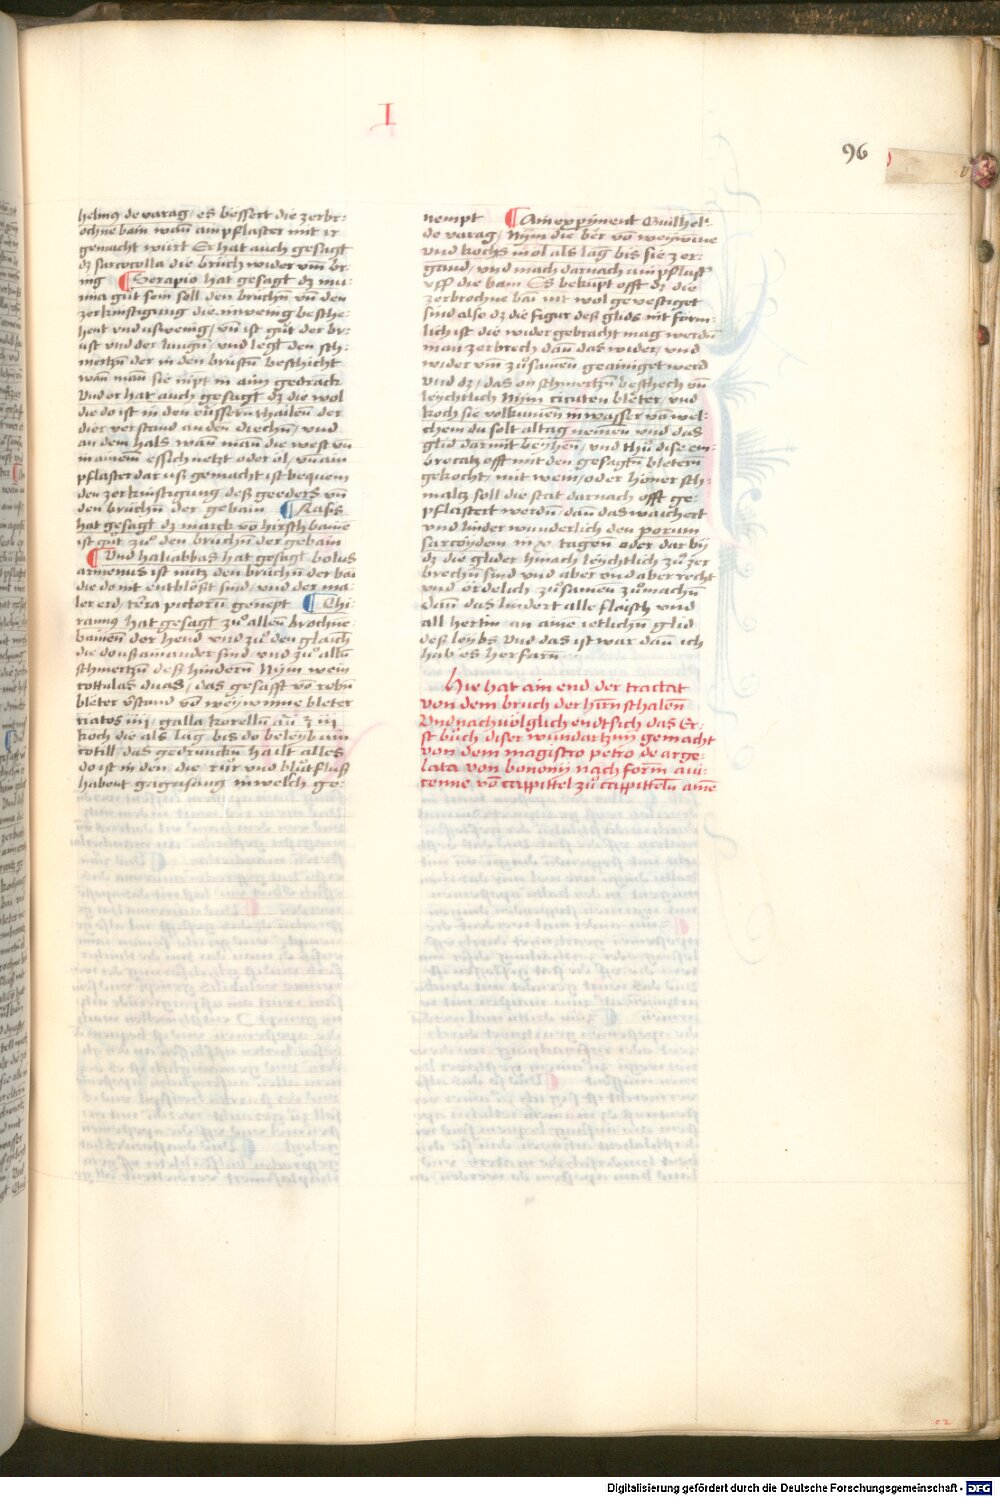 I
96
helmus de varag / es bessert die zerbr=
ochne bain wan̄ ain pflaster mit ir
gemacht würt Er hat auch gesagt
dz sarcocolla die brüch wider vm̄ br=
ing ¶ Serapio hat gesagt dz mu=
mia gůt sein soll den brüchn̄ vn̄ den
zerkinstigung die inwenig besche=
hent vnd uswenig / vn̄ ist gůt der br=
ust vnd der lungn̄ / vnd legt den sch=
mertzn̄ der in den brüstn̄ beschicht
wan̄ man̄ sie nīpt in aim gedrāck
Vnd er hat auch gesagt dz die wol
die do ist in den eüssern thailen̄ der
dier verstand an den diechn̄ / vnd
an dem hals wan̄ man̄ die
in ainem̄ essich netzt oder öl / vn̄ ain
pflaster dar usz gemacht ist bequem
den zerkinstigung desz geeders vn̄
den brüchn̄ der gebain ¶ Rasis
hat gesagt dz marck vō hirsch baine
ist gůt zů den brüchn̄ der gebain
¶ Vnd haliabbas hat gesagt bolus
armenus ist nütz den brüchn̄ der bai
die do nit entblöszt sind / vnd der ma=
ler erd / terra pictorū genēpt ¶ Chi=
ramus hat gesagt zů allen̄ brochne
bainen̄ der hend vnd zů den glaich
die do usz ainander sind vnd zů alln̄
schmertzn̄ desz hindern̄ Nÿm wein
cottulas duas / das gesafft vō
bleter vͤstand vō weÿwinne bleter
ciatos iiij / galla
koch die als lāg bis do beleyb ain
cotill / das gedrunckn̄ hailt alles
do ist in den die rür vnd blůtflusz
habent gagrisang in welch ge=
nempt ¶ Ain exp̄iment Guilhel=
de varag / Nÿm die ber vō weÿwine
vnd kochs in öl als lāg bis sie zer=
gand / vnd mach darnach ain pflastͤ
vff die bain Es beküpt offt dz die
zerbrochne bai nit wol gevestiget
sind also dz die figur desz glids nit förm=
lich ist die wider gebracht mag werdn̄
man zerbrech dan̄ das wider / vnd
wider vm̄ zůsamen geainiget werd
vnd dz / das on schmertzn̄ beschech vn̄
leÿchtlich Nÿm cicuten bleter / vnd
koch sie volkumen̄ in wasser von wel=
chem du solt alltag nemen̄ vnd das
glid darmit beÿhen̄ / vnd thů dise em=
brocatz offt mit den gesagtn̄ bletern
gekocht / mit wein / oder höner sch=
maltz soll die stat darnach offt ge=
pflastert werdn̄ dan̄ das waichert
vnd linder wunderlich den porum
sarcoÿdem in xv tagen̄ oder dar bÿ
dz die glider hinach leÿchtlich zů zer
brechn̄ sind vnd aber vnd aber recht
vnd ördelich zůsamen zůmachn̄
dan̄ das lindert alle flaisch vnd
all hertin an aine ietlichn̄ glid
desz leÿbs Vnd das ist war dan̄ ich
hab es herfarn̄
Hie hat ain end der tractat
von dem bruch der hirn schalen
Vnd nachuölglich endt sich das Er=
st büch diser wundartznÿ gemacht
von dem magistro petro de arge=
lata von bononÿ nach form̄ aui=
cenne vō cappittel zů cappitteln̄ ame
Digitalisierung gefördert durch die Deutsche Forschungsgemeinschaft - DFG